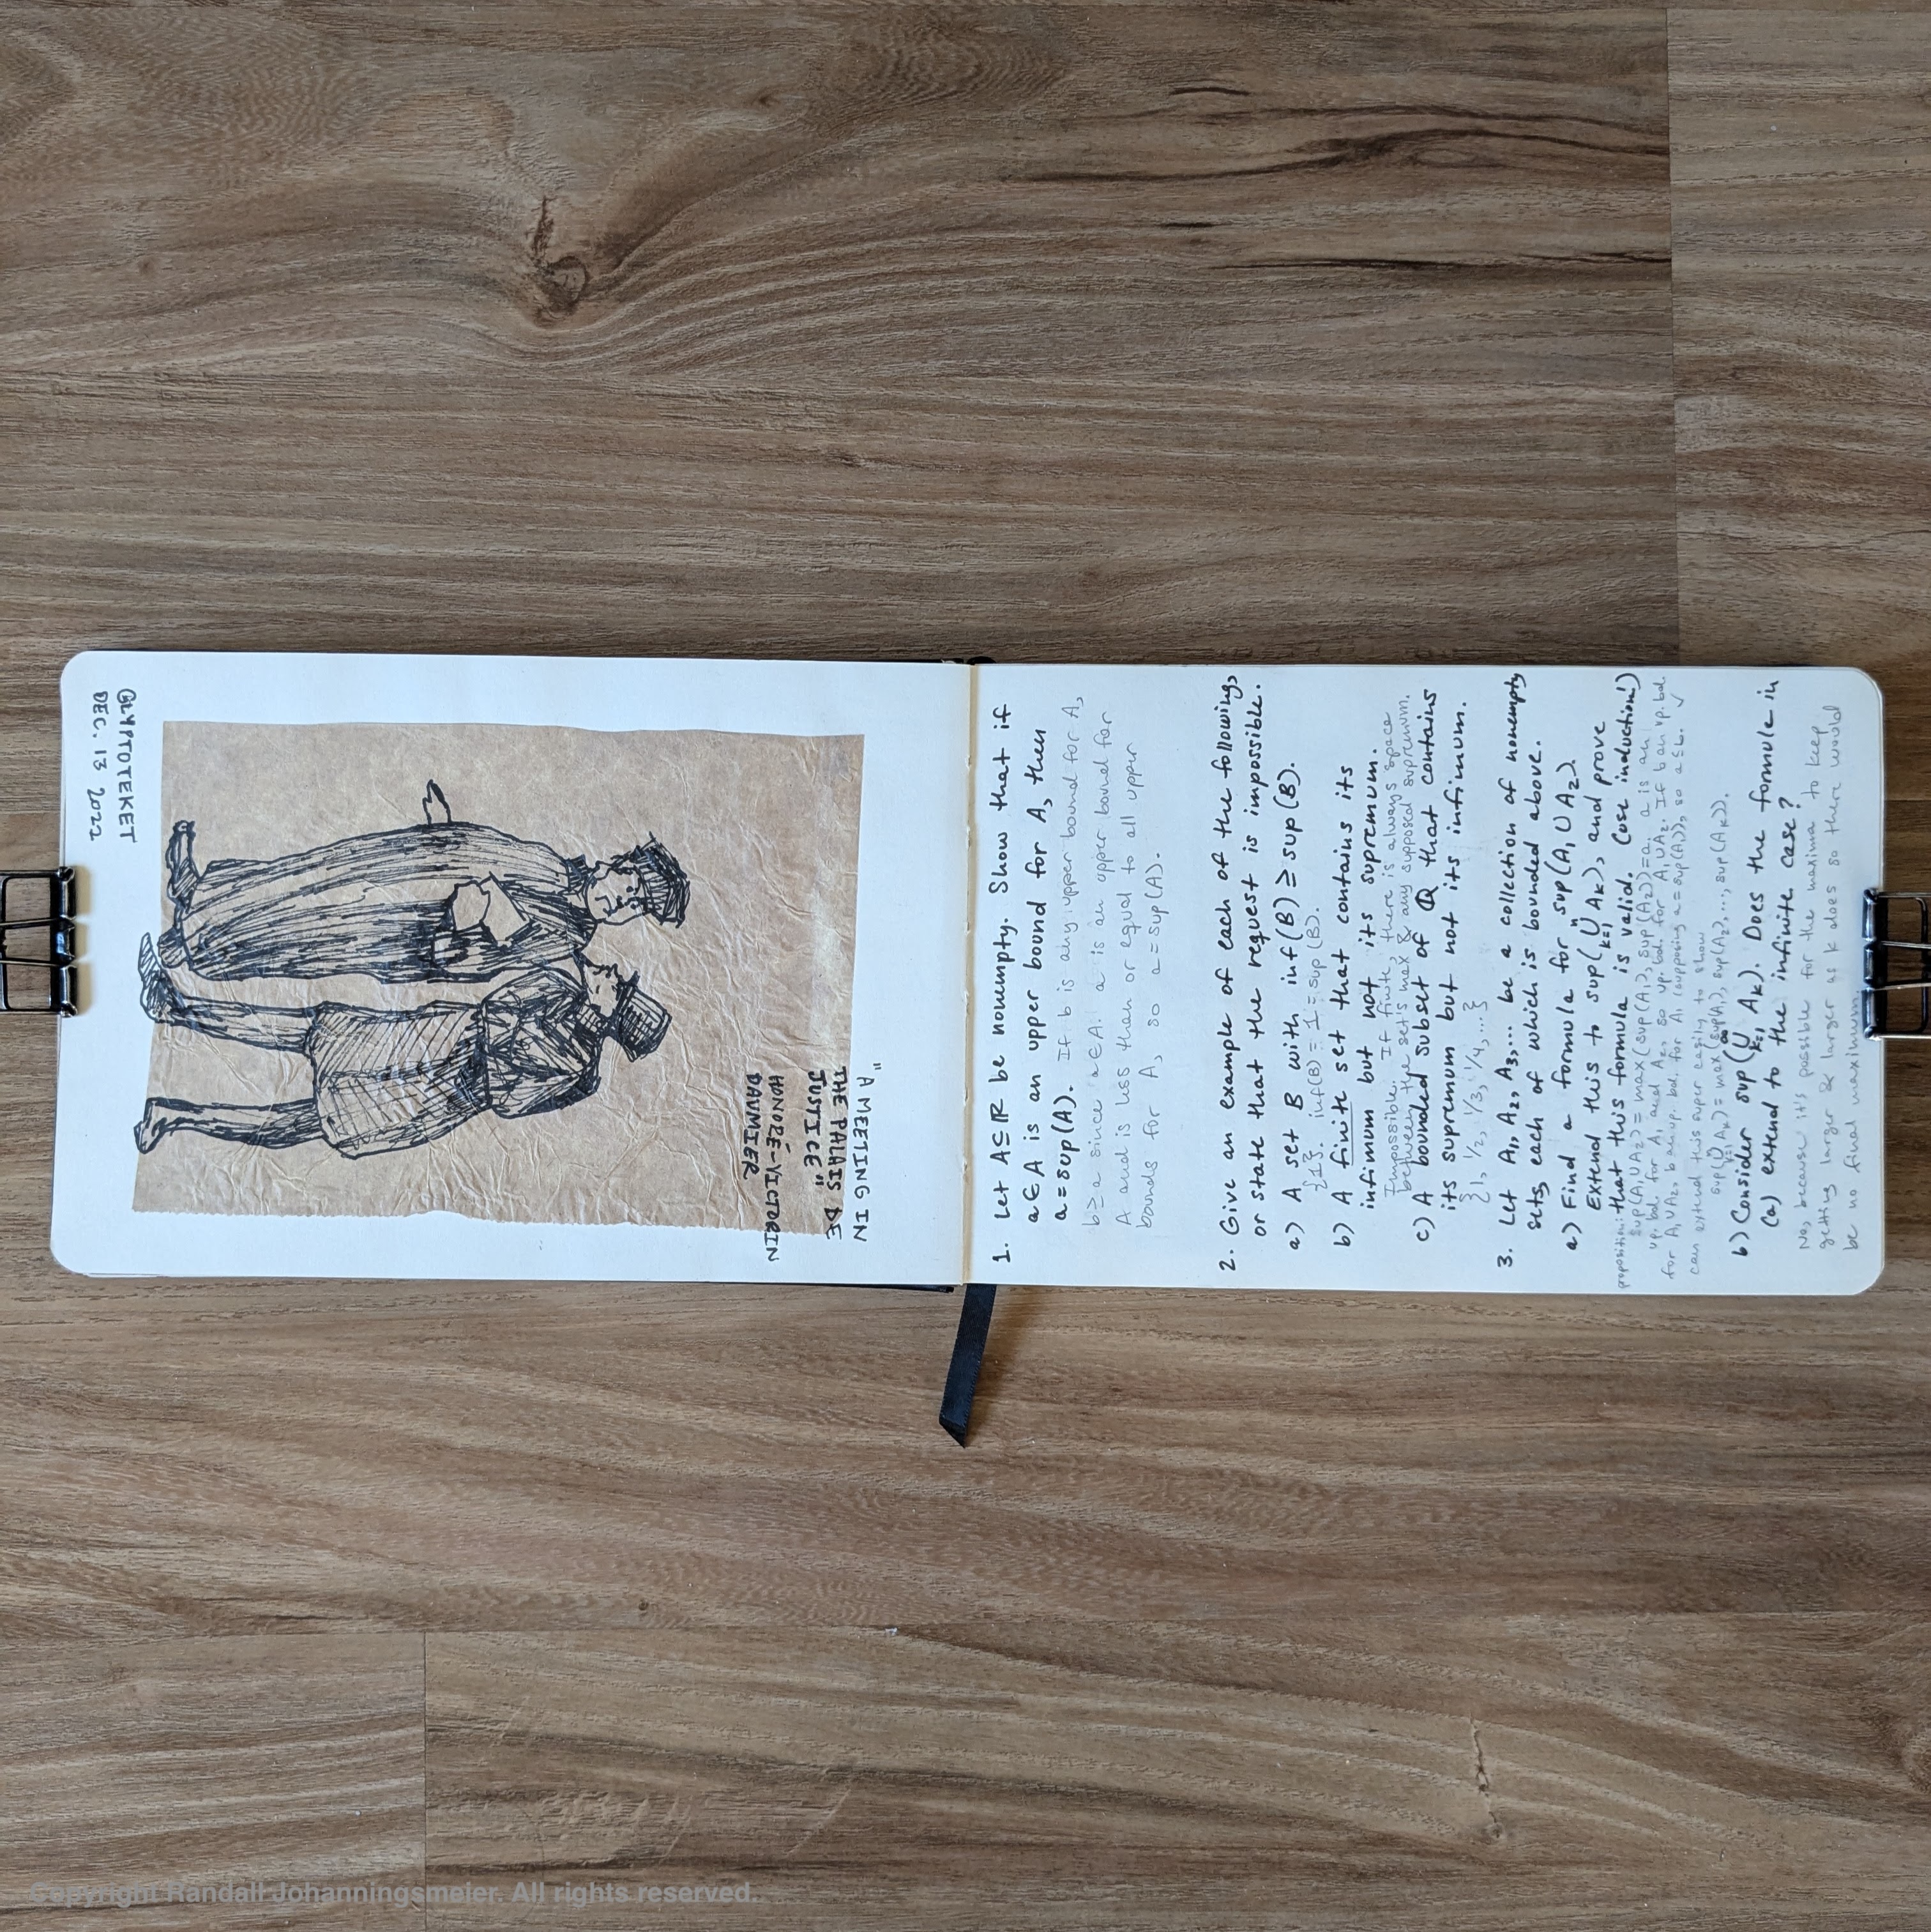 GLYPTOTEKET
DEC. 13 2022
"A MEETING IN
THE PALAIS DE
JUSTICE"
HONORÉ-VICTORIN
DAUMIER
1. Let A⊆ℝ be nonempty. Show that if
a∈A is an upper bound for A, then
a=sup(A). If b is any upper bound for A,
b≥a since a∈A. a is an upper bound for
A and is less than or equal to all upper
bounds for A, so a=sup(A).
2. Give an example of each of the following,
or state that the request is impossible.
a) A set B with inf(B)≥sup(B).
{1}. inf(B)=1=sup(B).
b) A finite set that contains its
infimum but not its supremum.
Impossible. If finite, there is always space
between the set's max & any supposed supremum.
c) A bounded subset of ℚ that contains
its supremum but not its infimum.
{1, 1/2, 1/3, 1/4,...}
3. Let A₁, A₂, A₃,... be a collection of nonempty
sets, each of which is bounded above.
a) Find a formula for sup(A₁∪A₂).
Extend this to sup(⋃ⁿₖ₌₁ Aₖ), and prove
that this formula is valid. (use induction!)
proposition: sup(A₁∪A₂)=max(sup(A₁), sup(A₂))=a. a is an
up. bd. for A₁ and A₂, so up. bd. for A₁∪A₂. If b an up. bd.
for A₁∪A₂, b an up. bd. for A₁ (supposing a=sup(A₁)), so a≤b. ✓
can extend this super easily to show
sup(⋃ⁿₖ₌₁ Aₖ)=max(sup(A₁), sup(A₂),..., sup(Aₖ)).
b) Consider sup(⋃^∞ₖ₌₁ Aₖ). Does the formula in
(a) extend to the infinite case?
No, because it's possible for the maxima to keep
getting larger & larger as k does so there would
be no final maximum.
Copyright Randall Johanningsmeier. All rights reserved..